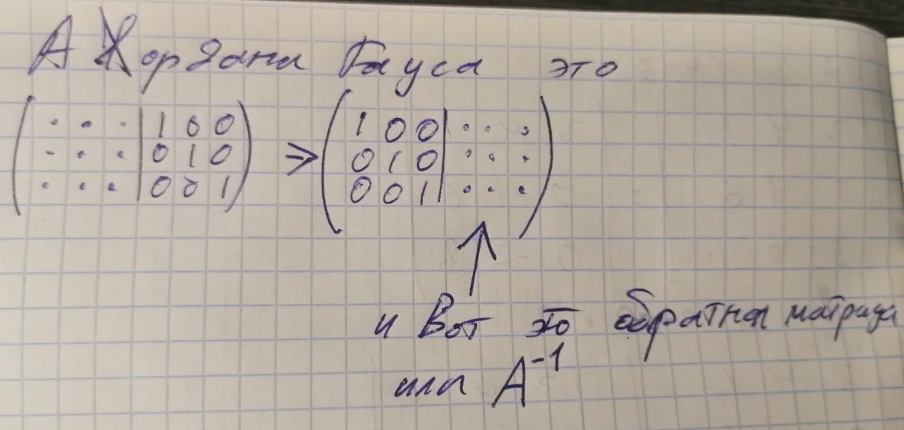 А Жордана Гауса это
( . . . | 1 0 0 ) ⇒ ( 1 0 0 | . . . )
( . . . | 0 1 0 ) ( 0 1 0 | . . . )
( . . . | 0 0 1 ) ( 0 0 1 | . . . )
и Вот это обратная матрица
или A⁻¹